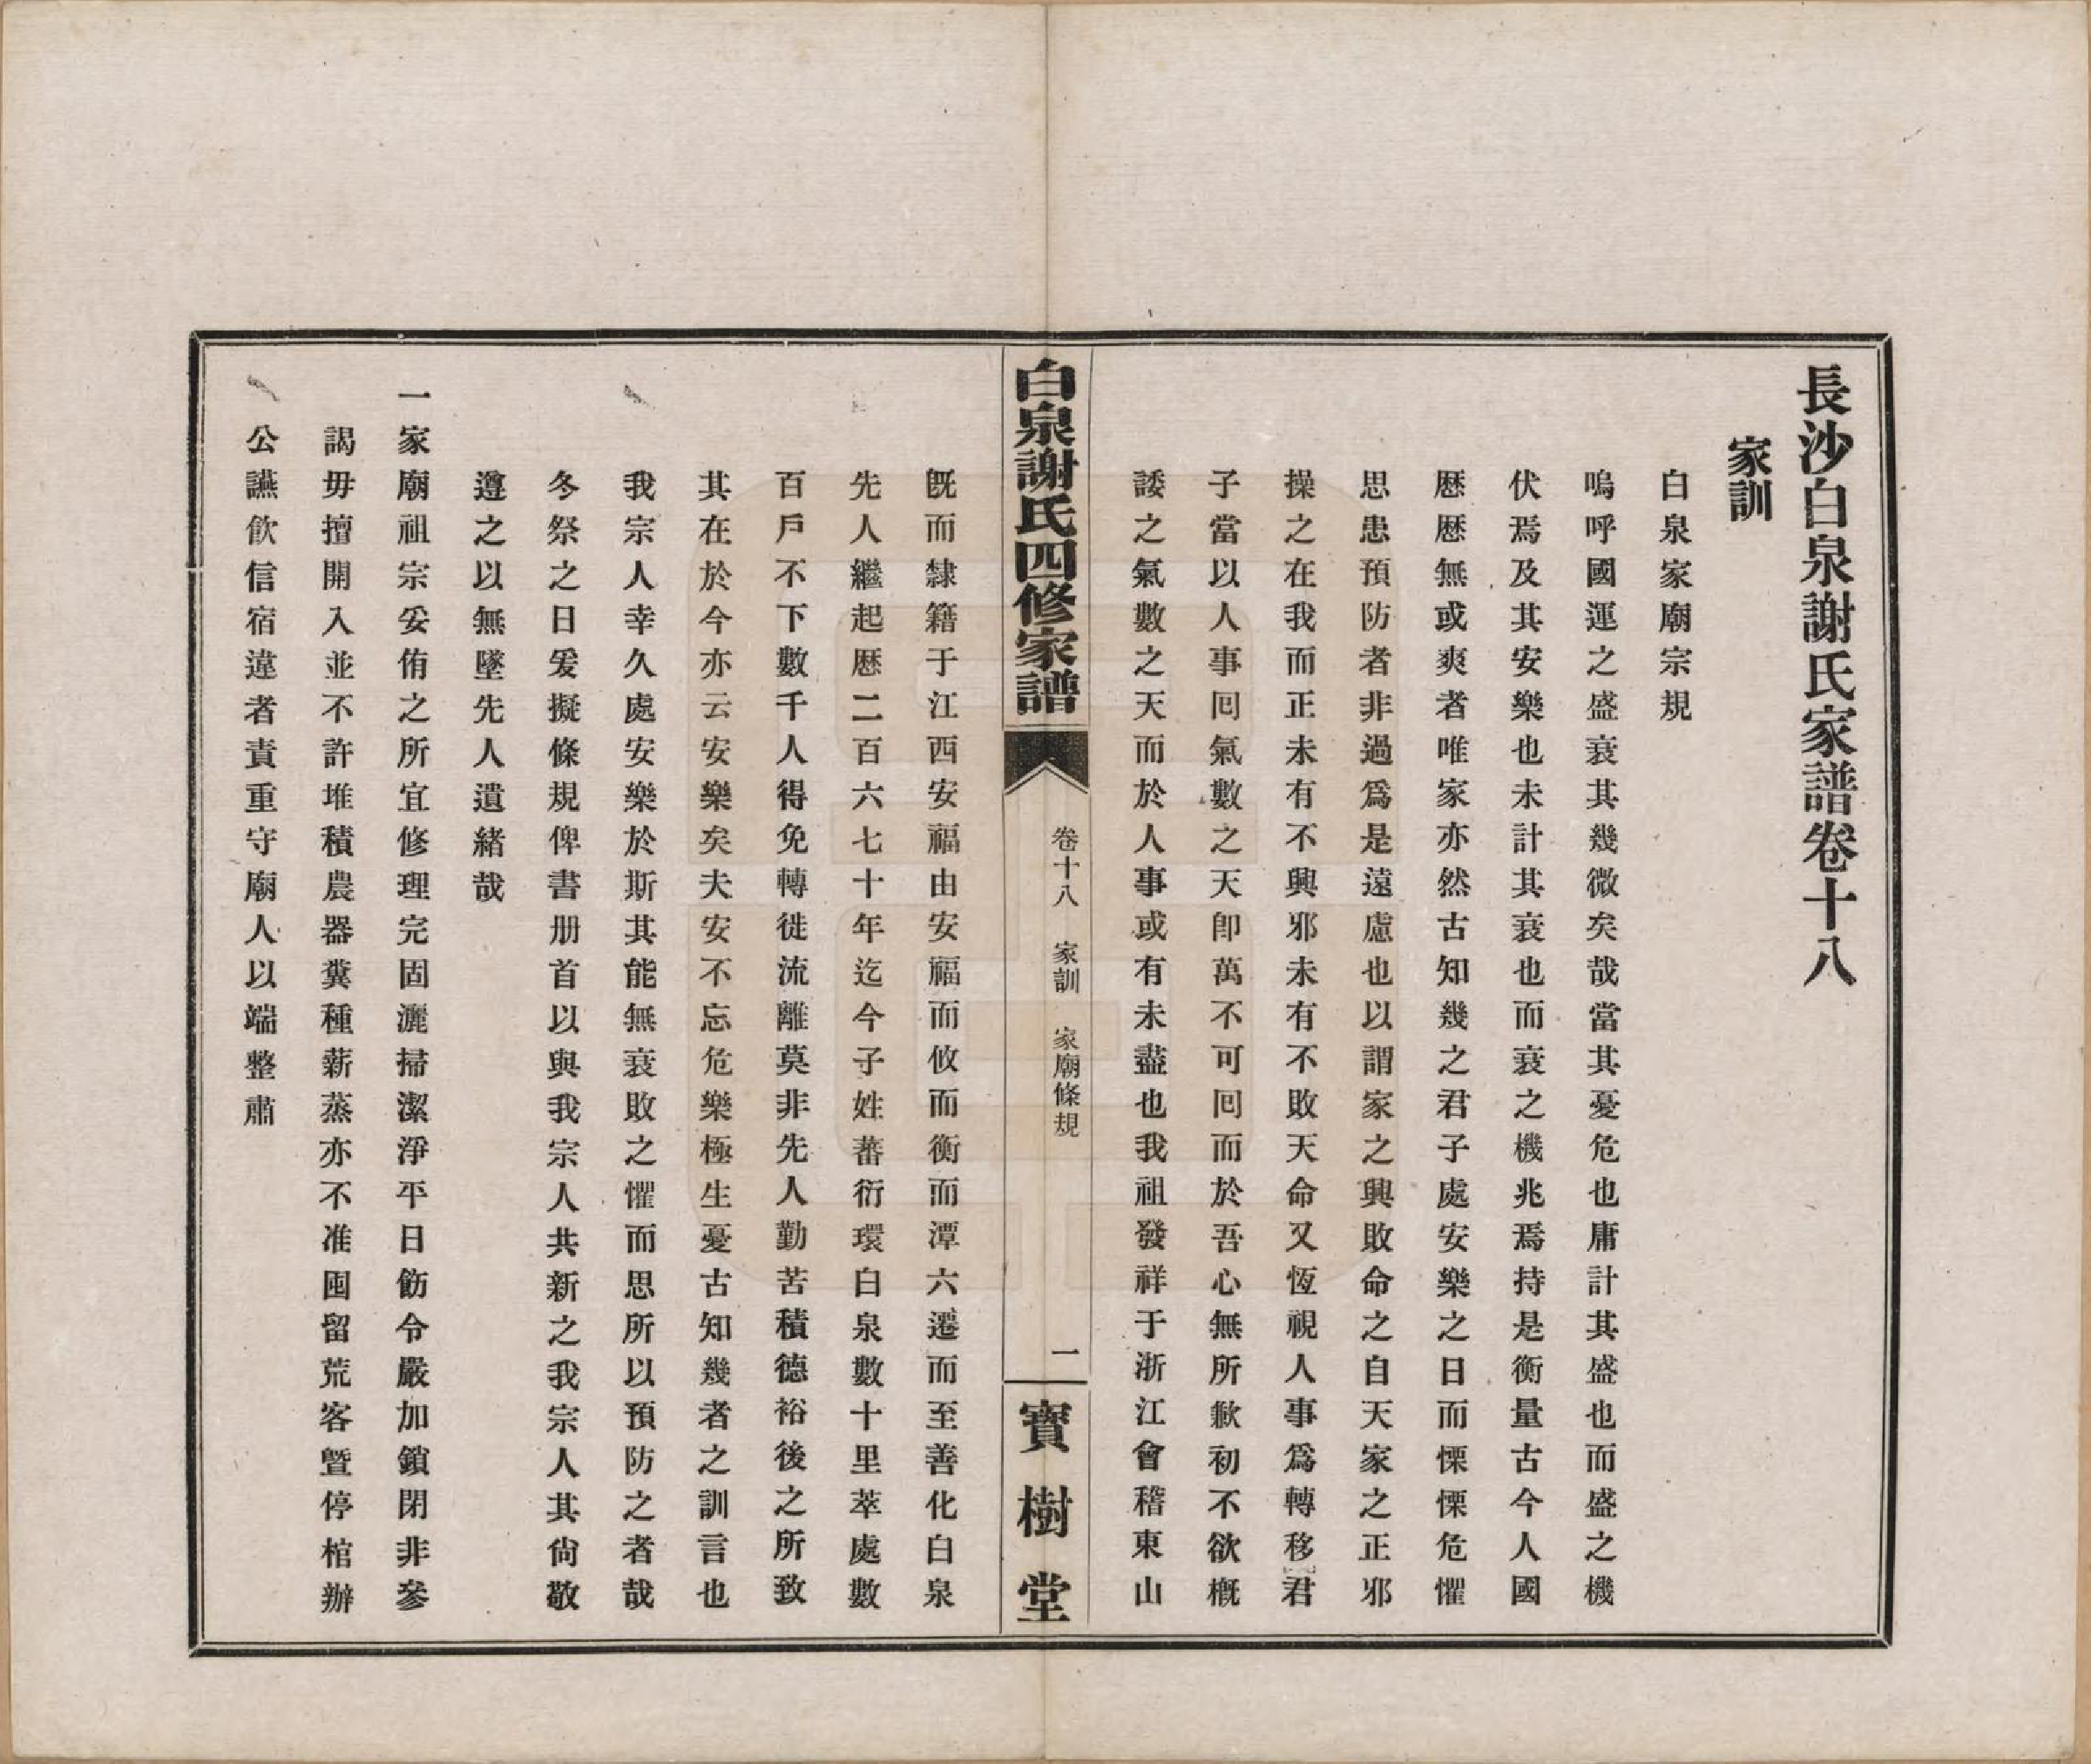 長沙白泉謝氏家譜卷十八
家訓
白泉家廟宗規
嗚呼國運之盛衰其幾微矣哉當其憂危也庸計其盛也而盛之機
伏焉及其安樂也未計其衰也而衰之機兆焉持是衡量古今人國
歷歷無或爽者唯家亦然古知幾之君子處安樂之日而慄慄危懼
思患預防者非過爲是遠慮也以謂家之興敗命之自天家之正邪
操之在我而正未有不興邪未有不敗天命又恆視人事爲轉移君
子當以人事回氣數之天卽萬不可回而於吾心無所歉初不欲概
諉之氣數之天而於人事或有未盡也我祖發祥于浙江會稽東山
白泉謝氏四修家譜
卷十八 家訓 家廟條規
一
寶樹堂
旣而隸籍于江西安福由安福而攸而衡而潭六遷而至善化白泉
先人繼起歷二百六七十年迄今子姓蕃衍環白泉數十里萃處數
百戶不下數千人得免轉徙流離莫非先人勤苦積德裕後之所致
其在於今亦云安樂矣夫安不忘危樂極生憂古知幾者之訓言也
我宗人幸久處安樂於斯其能無衰敗之懼而思所以預防之者哉
冬祭之日爰擬條規俾書册首以與我宗人共新之我宗人其尙敬
遵之以無墜先人遺緒哉
一家廟祖宗妥侑之所宜修理完固灑掃潔淨平日飭令嚴加鎖閉非參
謁毋擅開入並不許堆積農器糞種薪蒸亦不准囤留荒客曁停棺辦
公讌飮信宿違者責重守廟人以端整肅